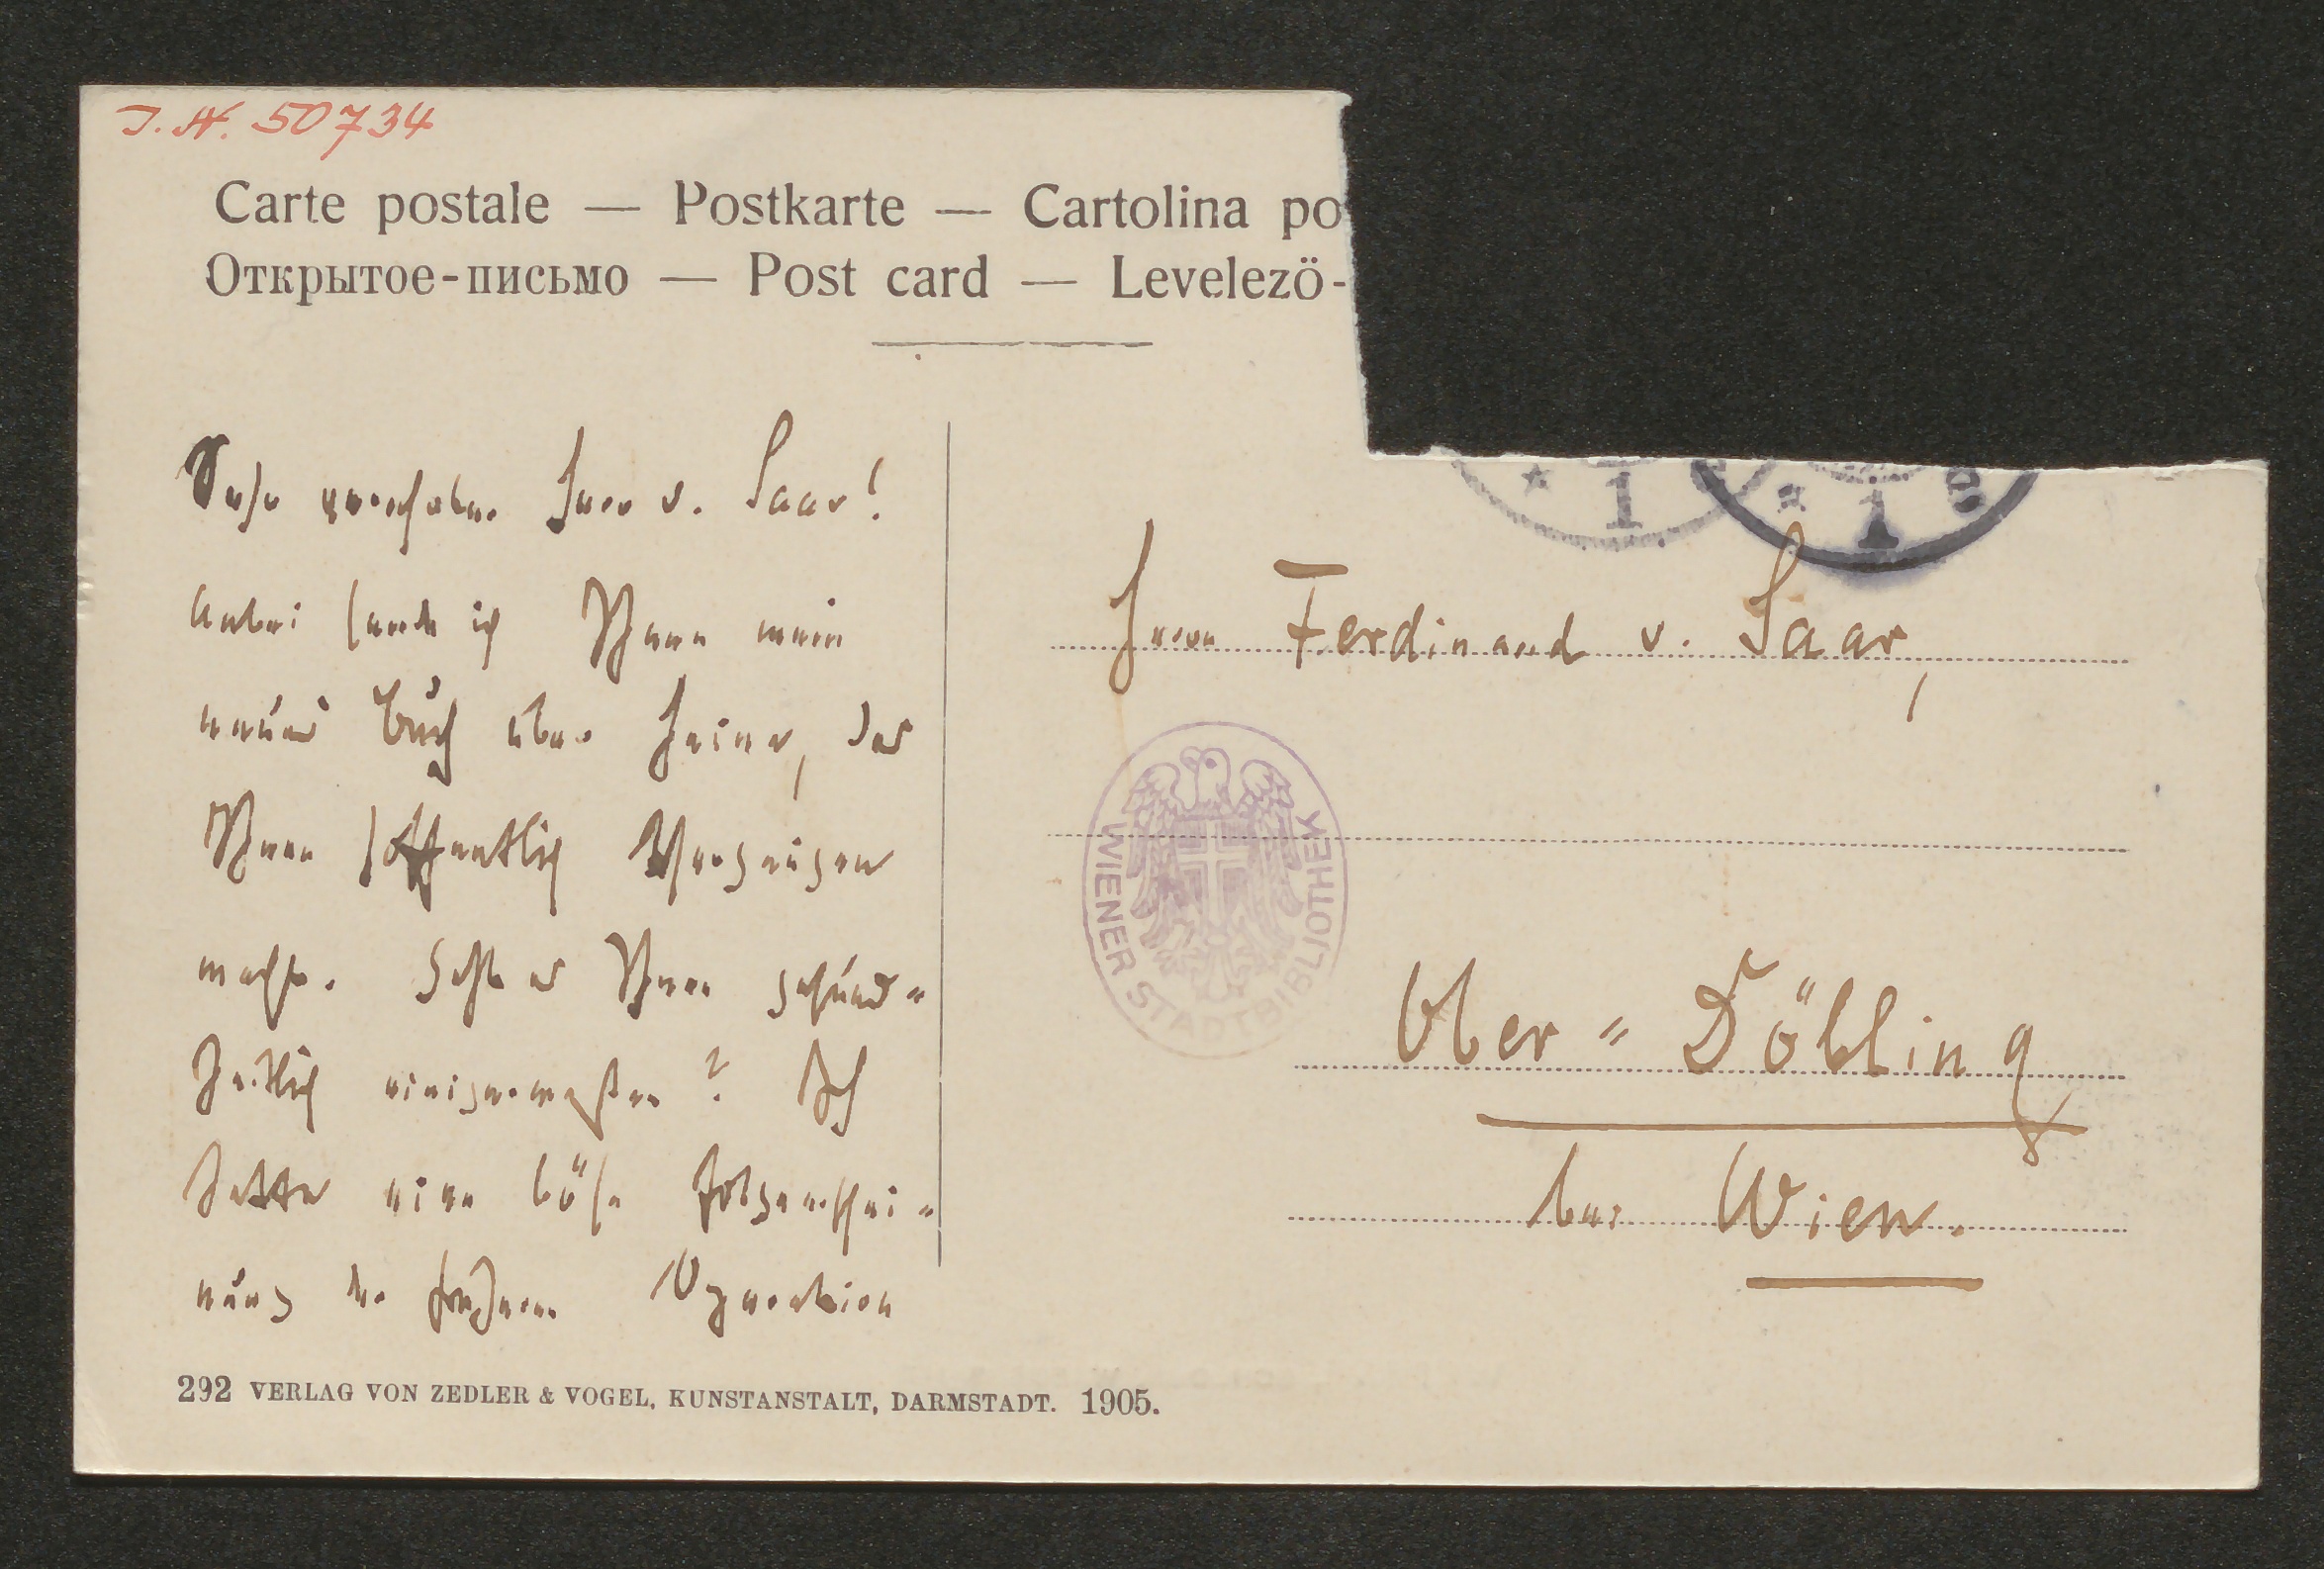 J. N. 50734
Carte postale — Postkarte — Cartolina po
Открытое-письмо — Post card — Levelezö-
Sehr verehrter Herr v. Saar!
Anbei sende ich Ihnen mein
neues Buch über Heine, das
Ihnen hoffentlich Vergnügen
macht. Geht es Ihnen gesund-
heitlich einigermaßen? Ich
hatte eine böse Folgeerschei-
nung der früheren Operation
292 VERLAG VON ZEDLER & VOGEL, KUNSTANSTALT, DARMSTADT. 1905.
* 1
* 1
Herrn Ferdinand v. Saar,
WIENER STADTBIBLIOTHEK
Ober-Döbling
bei Wien.